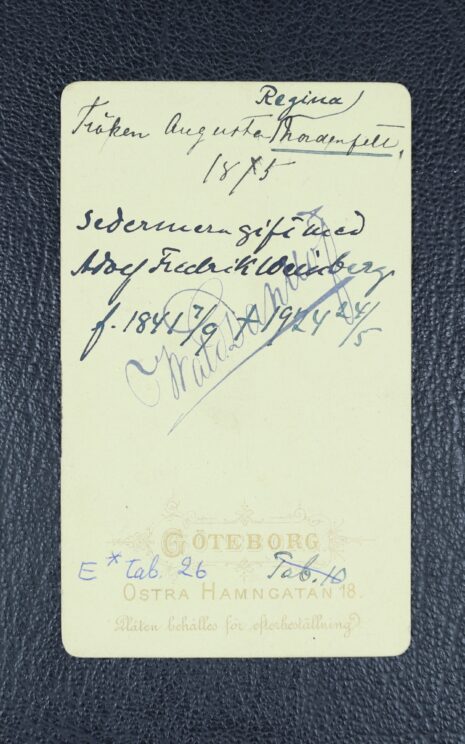 Regina
Fröken Augusta Thordenfelt,
1875
sedermera gift med
Adolf Fredrik Weinberg
f. 1841 7/9 † 1924 24/5
GÖTEBORG
E* Tab. 26 Tab. 10
ÖSTRA HAMNGATAN 18.
Plåten behålles för efterbeställning